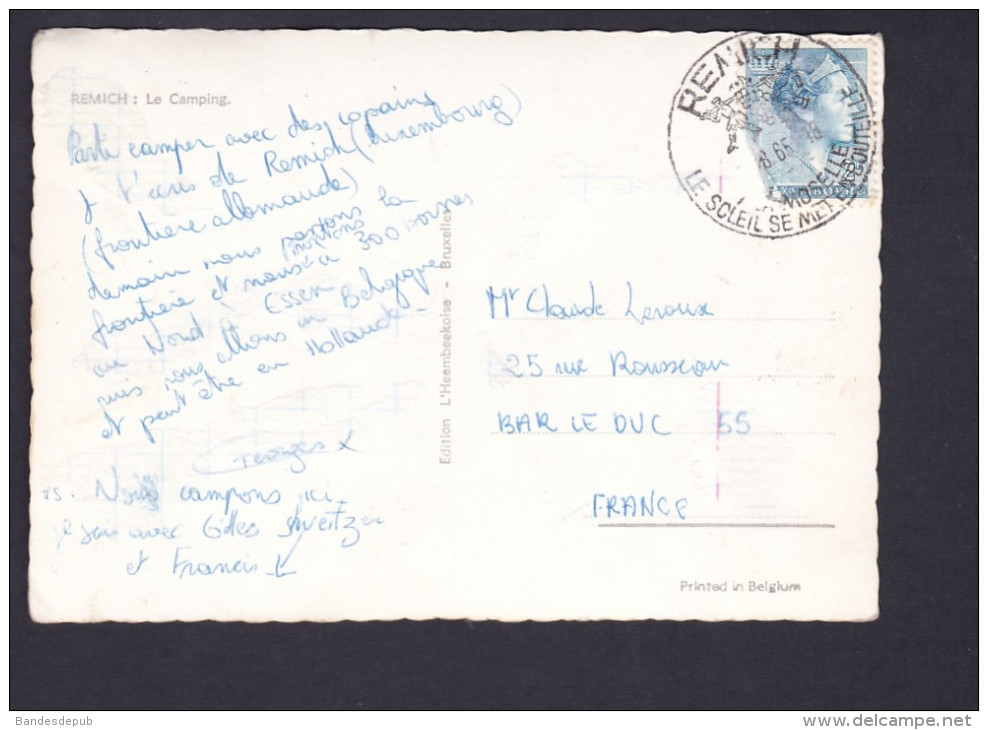 REMICH : Le Camping.
Parti camper avec des copains
à de Remich (Luxembourg)
(frontière allemande)
demain nous passons la
frontière et nous à 300 bornes
au Nord à Essen
puis nous allons en Belgique
et peut être en Hollande -
Georges
PS. Nous campons ici
je suis avec Gilles Sweitzer
et Francis
Edition L'Heembeekoise - Bruxelles
REMICH
8.65
MOSELLE
LE SOLEIL SE MET EN BOUTEILLE
Mr Claude Leroux
25 rue Rousseau
BAR LE DUC 55
FRANCE
Printed in Belgium
Bandesdepub
www.delcampe.net